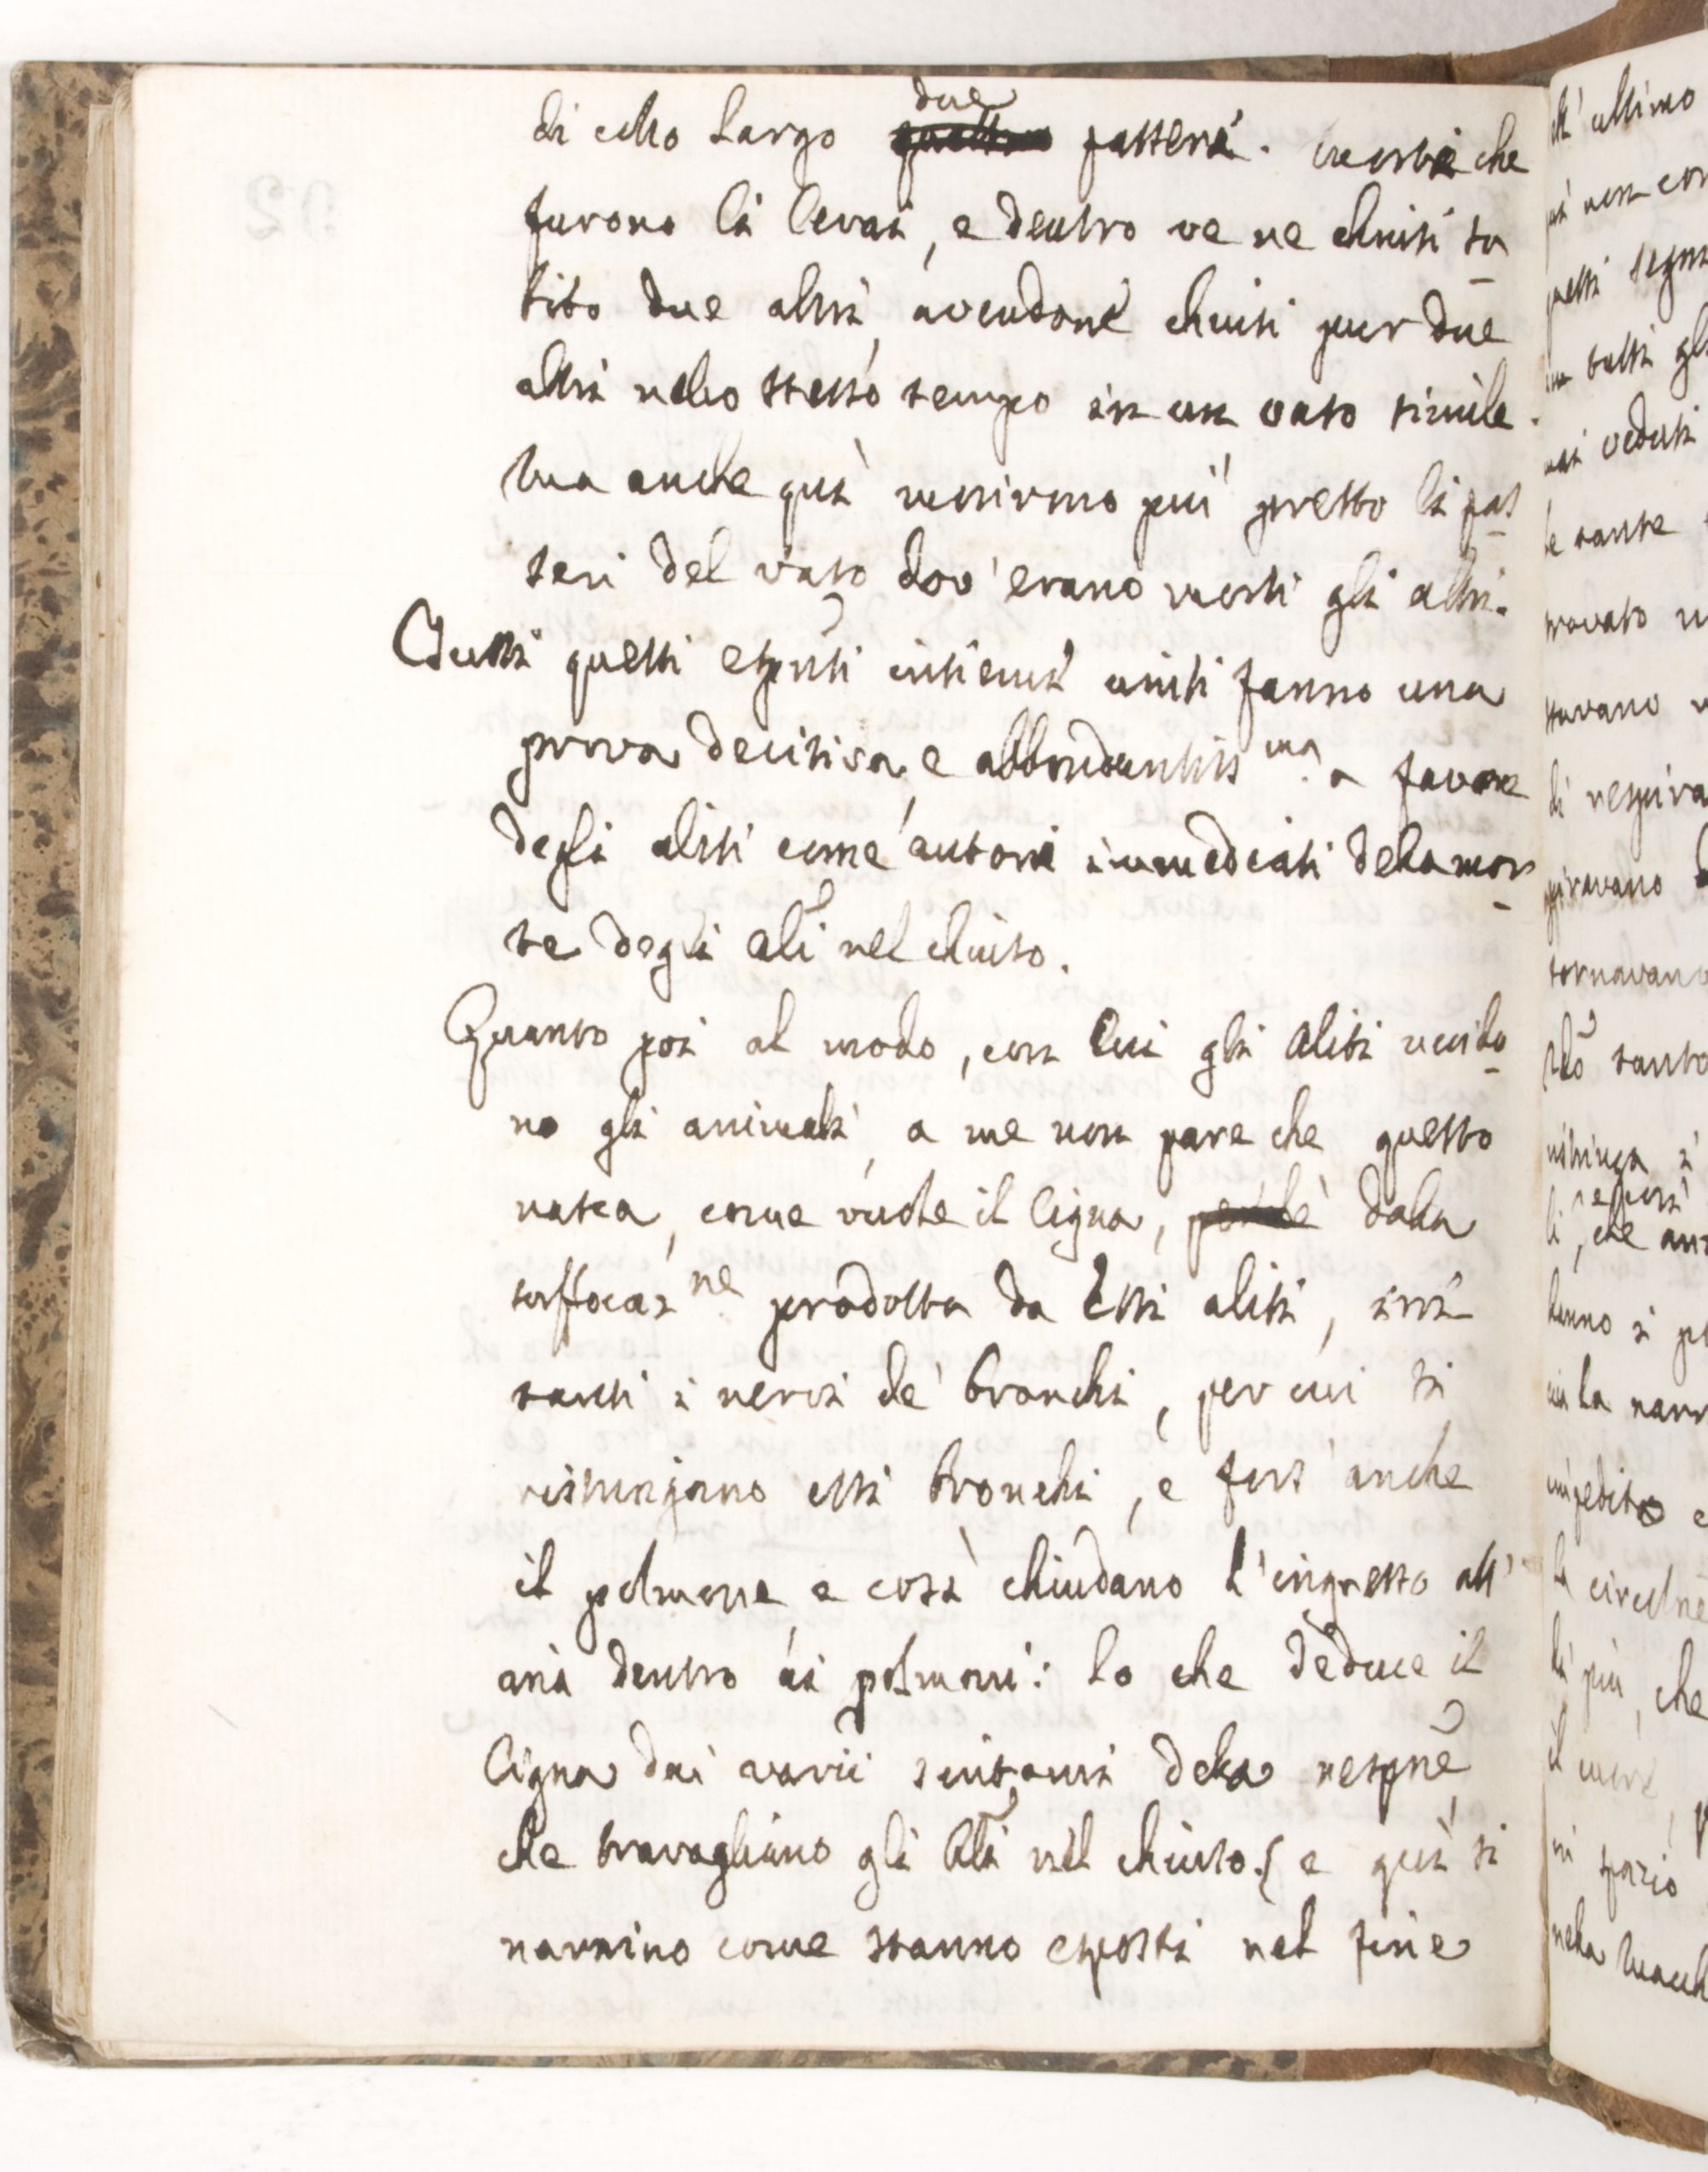 di collo largo due passeri. morti che
furono li levai, e dentro ve ne chiusi su
bito due altri, avendone chiusi pur due
altri nello stesso tempo in un vaso simile.
ma anche quì morirono più presto li pas
seri del vaso dov'erano morti gli altri.
Tutti questi espti insieme uniti fanno una
prova decisiva, e abbondantiss.ma a favore
degli aliti come autori immediati della mor
te degli ali nel chiuso.
Quanto poi al modo, con cui gli aliti uccido
no gli animali, a me non pare che questo
nasca, come vuole il Cigna, perchè dalla
soffocaz.ne prodotta da essi aliti, irri
tanti i nervi de' bronchi, per cui si
ristringano essi bronchi, e fors' anche
il polmone, e così chiudano l'ingresso all'
aria dentro ai polmoni: lo che deduce il
Cigna dai varii sintomi della respne
che travagliano gli ali nel chiuso. (e quì si
narrino come stanno esposti nel fine
ultimo
non con
segni
tutti gli
veduti
le tante
trovato
stavano
di respira
spiravano
tornavano
tanto
e così
li, che
la narr
impedito e
la
li più, che
il
spazio
nella